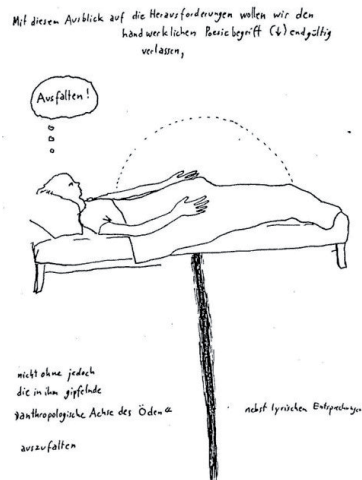 Mit diesem Ausblick auf die Herausforderungen wollen wir den
handwerklichen Poesiebegriff (↓) endgültig
verlassen,
Ausfalten!
nicht ohne jedoch
die in ihm gipfelnde
»anthropologische Achse des Öden«
nebst lyrischen Entsprechungen
auszufalten